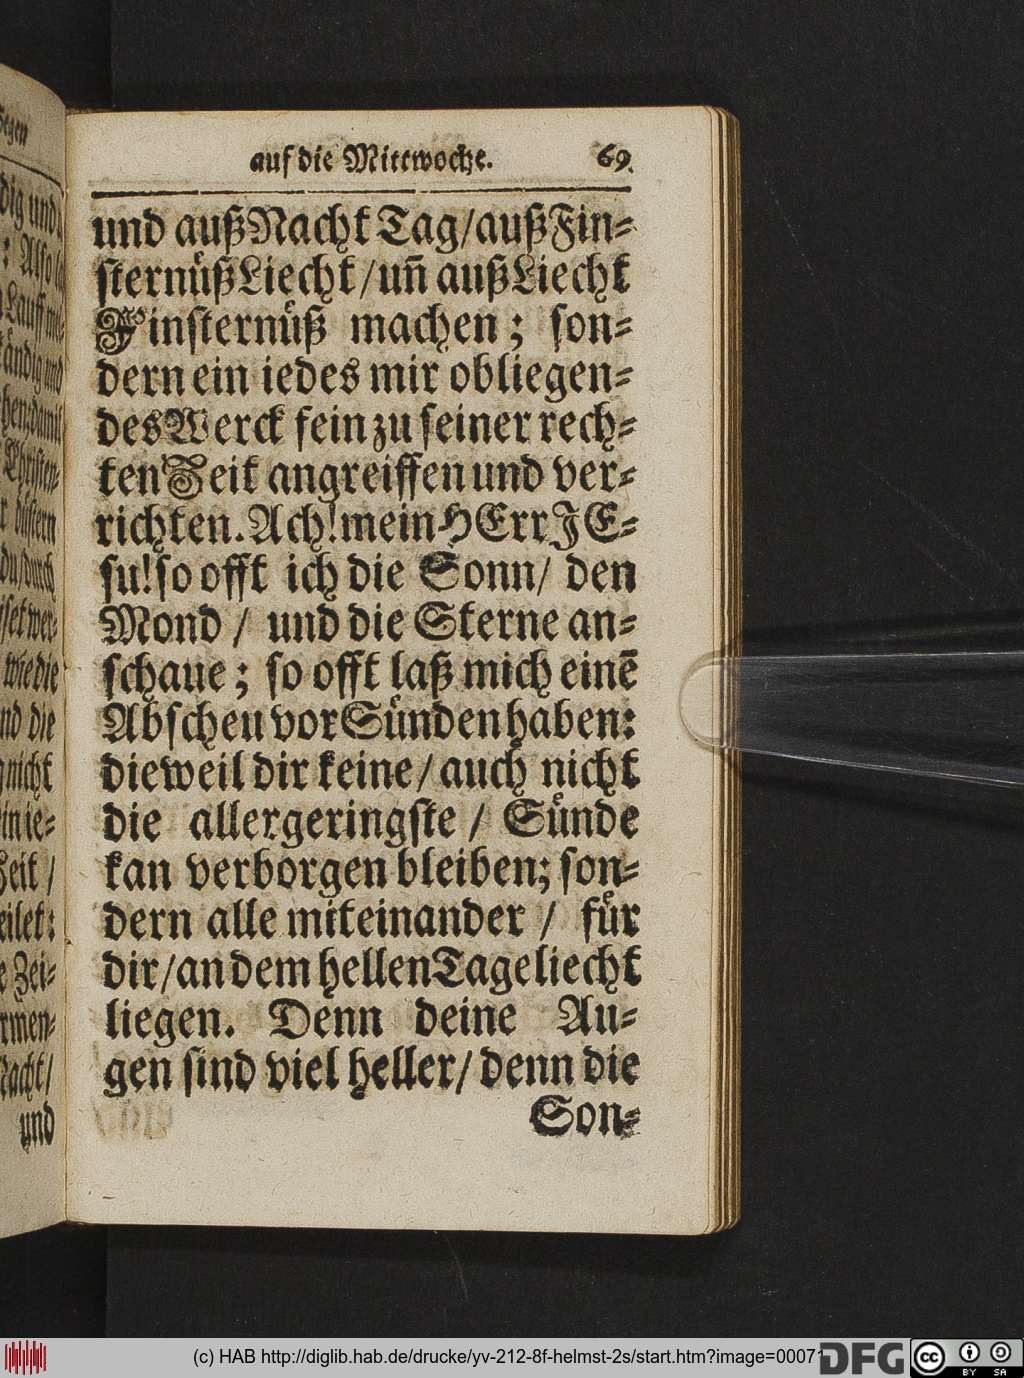 auf die Mittwoche. 69.
und auß Nacht Tag/auß Fin-
sternüß Liecht/uñ auß Liecht
Finsternüß machen; son-
dern ein iedes mir obliegen-
des Werck fein zu seiner rech-
ten Zeit angreiffen und ver-
richten. Ach! mein HErr JE-
su! so offt ich die Sonn/ den
Mond / und die Sterne an-
schaue; so offt laß mich einē
Abscheu vor Sünden haben:
dieweil dir keine/ auch nicht
die allergeringste / Sünde
kan verborgen bleiben; son-
dern alle miteinander / für
dir/an dem hellen Tageliecht
liegen. Denn deine Au-
gen sind viel heller/ denn die
Son-
dig und
: Also
Lauff
ändig und
damit
Christen-
düstern
du/durch
wer-
wie die
nd die
nicht
in ie-
Zeit /
eilet:
e Zei-
rmen-
Nacht/
und
(c) HAB http://diglib.hab.de/drucke/yv-212-8f-helmst-2s/start.htm?image=00071
DFG
cc BY SA